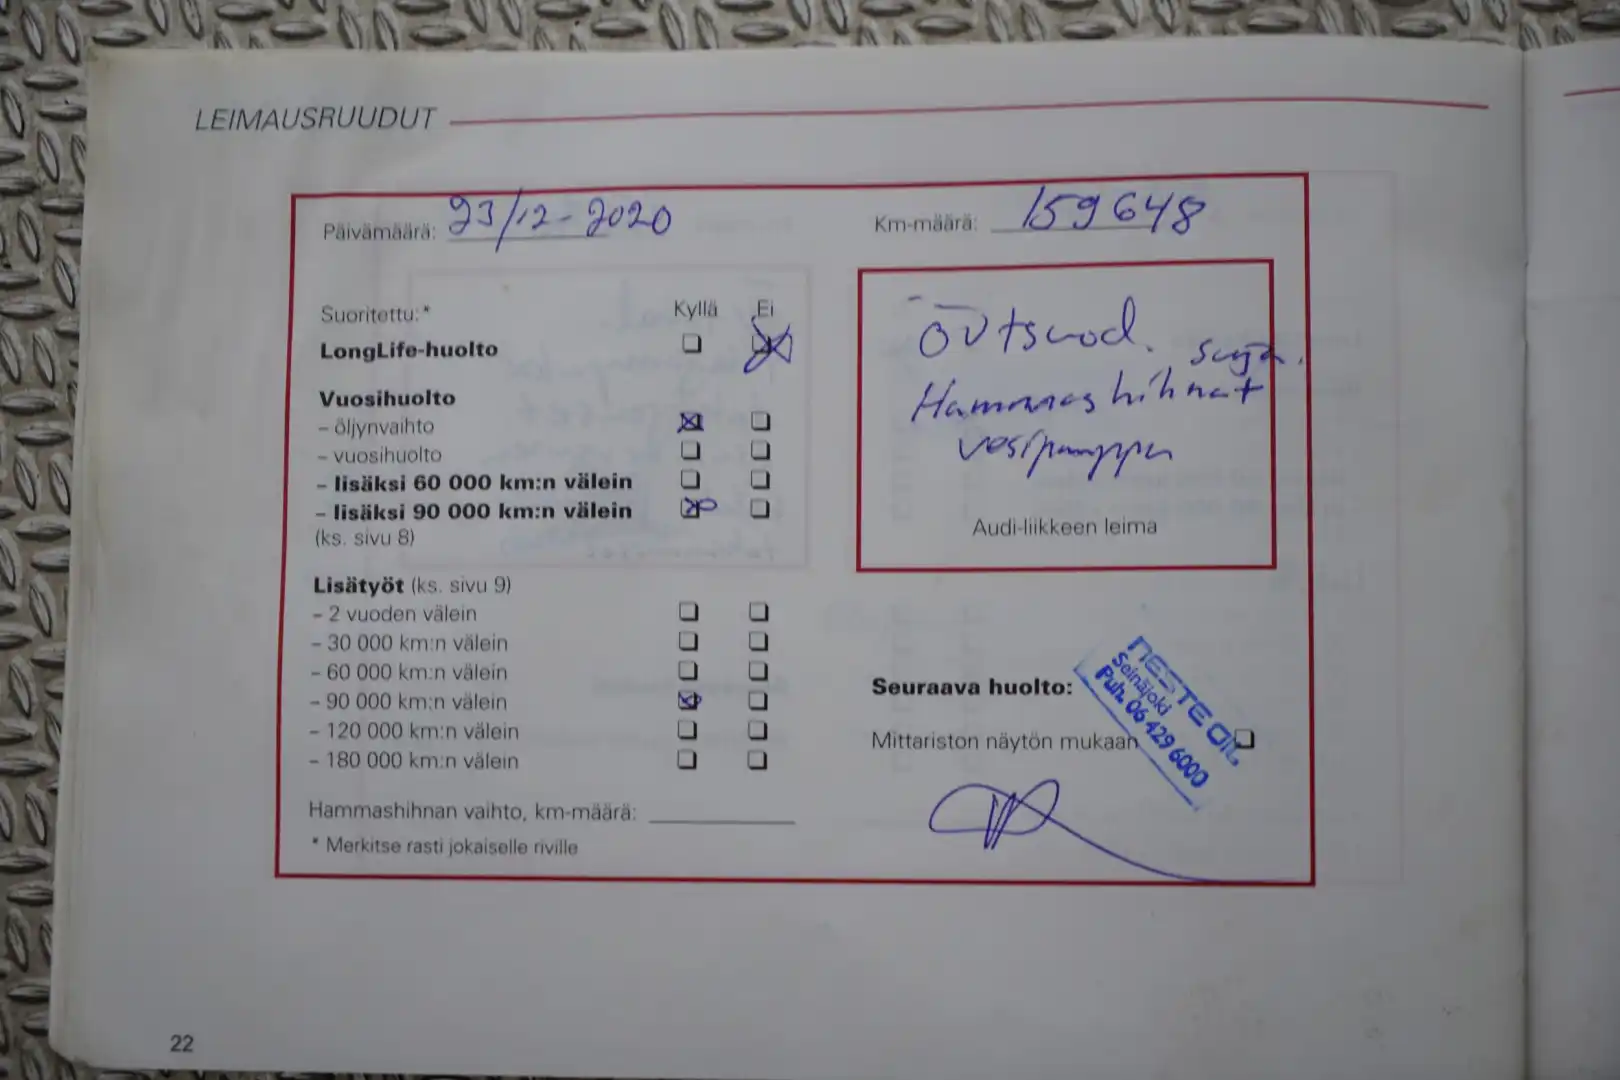 LEIMAUSRUUDUT
Päivämäärä: 23/12-2020
Km-määrä: 159648
Suoritettu:* Kyllä Ei
LongLife-huolto
Vuosihuolto
- öljynvaihto
- vuosihuolto
- lisäksi 60 000 km:n välein
- lisäksi 90 000 km:n välein
(ks. sivu 8)
Lisätyöt (ks. sivu 9)
- 2 vuoden välein
- 30 000 km:n välein
- 60 000 km:n välein
- 90 000 km:n välein
- 120 000 km:n välein
- 180 000 km:n välein
Hammashihnan vaihto, km-määrä:
* Merkitse rasti jokaiselle riville
Hammashihnat
vesipumppu
Audi-liikkeen leima
Seuraava huolto:
Mittariston näytön mukaan
NESTE OIL
Seinäjoki
Puh. 06 429 6000
22